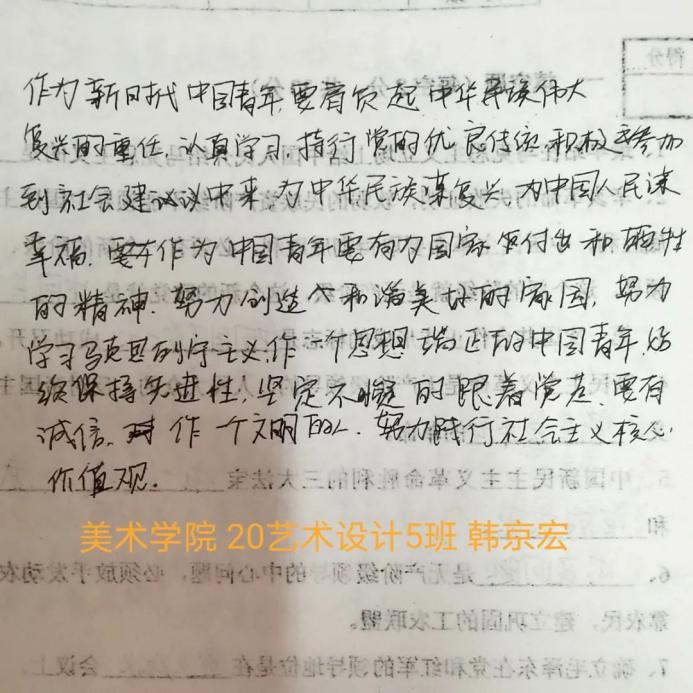 作为新时代中国青年,要肩负起中华民族伟大
复兴的重任,认真学习,指行党的优良传统,积极参加
到社会建设中来,为中华民族谋复兴,为中国人民谋
幸福,作为中国青年要有为国家付出和牺牲
的精神.努力创造个和谐美好的家园,努力
学习马克思列宁主义,作一个思想端正的中国青年,始
终保持先进性,坚定不疑的跟着党走,要有
诚信、作一个文明的人.努力践行社会主义核心
价值观.
美术学院 20艺术设计5班 韩京宏
得分
5、中国新民主主义革命胜利的三大法宝
和
6、是无产阶级领导的中心问题,必须放手发动农
靠农民,建立巩固的工农联盟。
7、确立毛泽东在党和红军的领导地位是在 会议上,